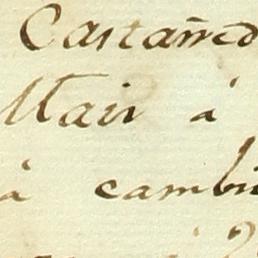 Castañed
Mair à
à cambi